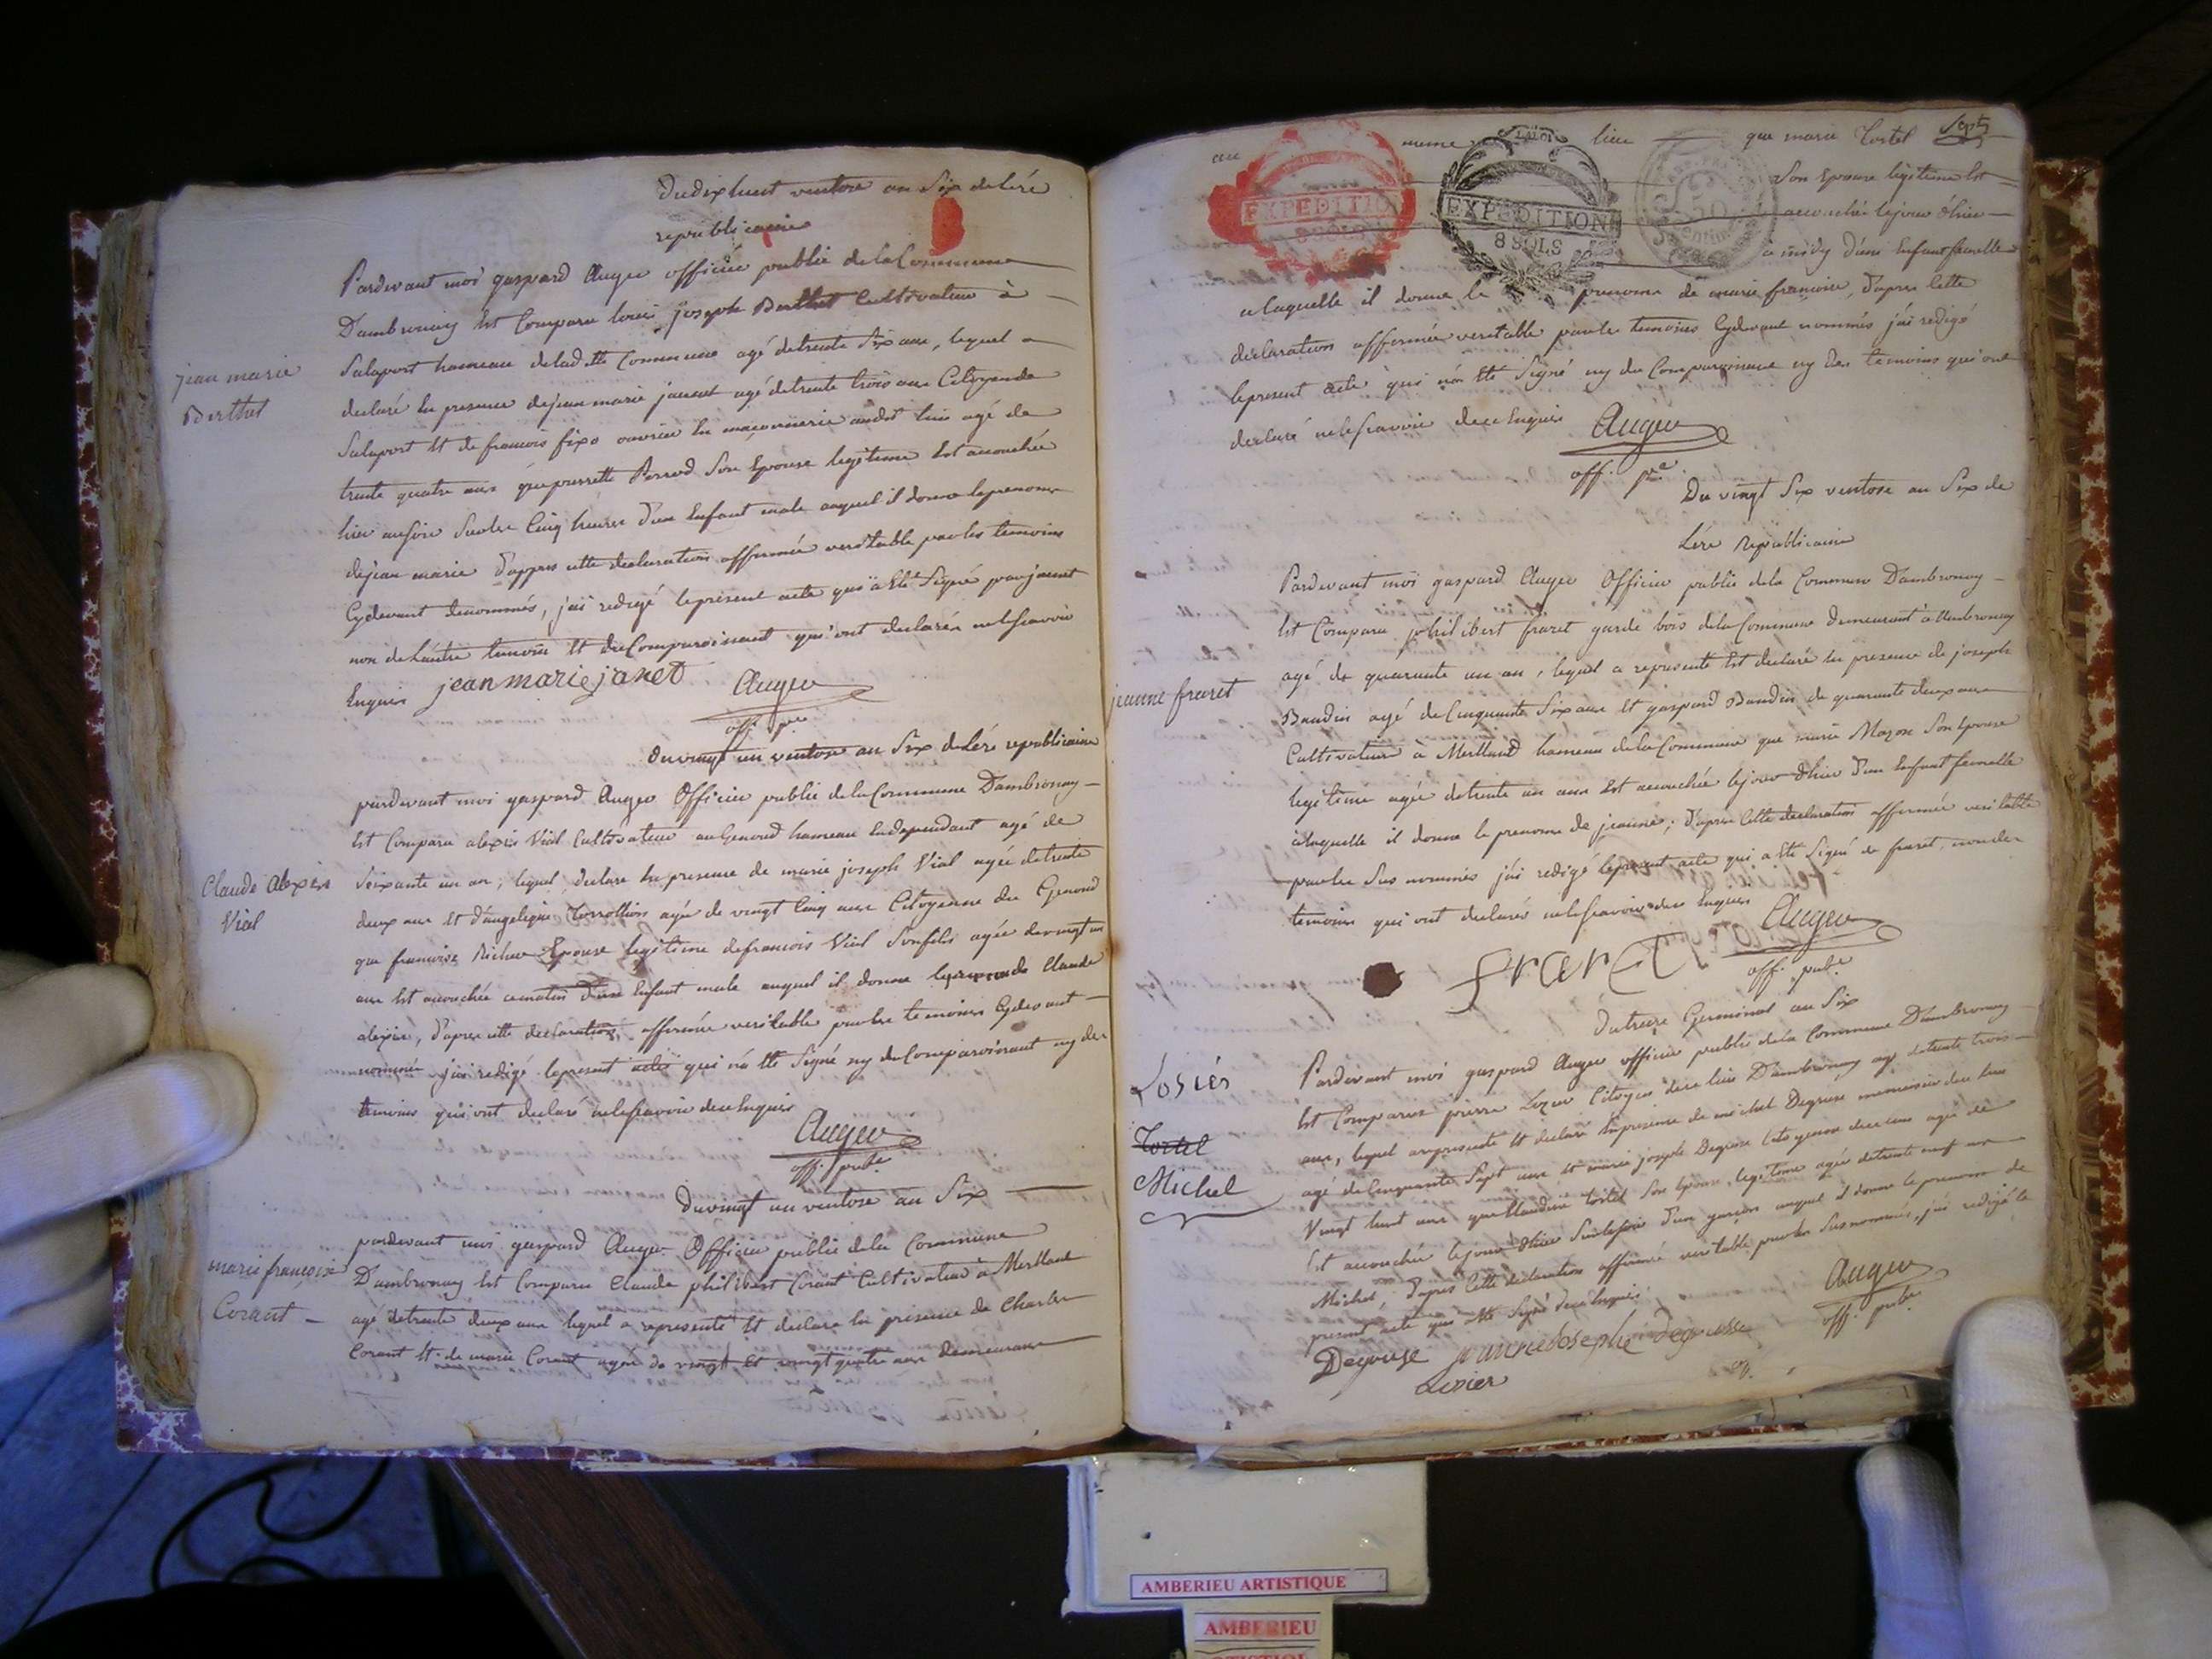 Du dix huit ventose an Six de lére
republicaine
jean marie
Berthet
Pardevant moi gaspard Auger officier public de la Commune
Dambronay Est Comparu louis joseph Berthet Cultivateur à
Salaport hameau de ladtte Commune agé de trente Six ans, lequel a
declaré En presence de jean marie janent agé de trente trois ans Citoyen de
Salaport Et de francois fixo ouvrier En maçonnerie audit lieu agé de
trente quatre ans que pierrette Perrod Son Epouse legitime Est accouchée
hier au soir Sur les Cinq heures d'un Enfant male auquel il donne le prenom
de jean marie d'appres cette declaration affirmée veritable par les temoins
Cydevant denommés, j'ai redigé le présent acte qui a Eté Signé par janent
non de l'autre temoin Et du Comparoissant qui ont declarés ne le scavoir
Enquis jean marie janet
Auger
off. pce
Du vingt un ventose an Six de lére republicaine
Claude Alexis
Vial
pardevant moi gaspard Auger Officier public de la Commune Dambronay
Est Comparu alexis Vial Cultivateur au Genoud hameau En dependant agé de
Soixante un an; lequel declare En presence de marie joseph Vial agée de trente
deux ans Et d'angelique agée de vingt Cinq ans Citoyenne du Genoud
que francoise Richer Epouse legitime de francois Vial Son fils agée de vingt un
ans Est accouchée ce matin d'un Enfant male auquel il donne le prenom de Claude
alexis, d'apres cette declaration, affirmée veritable par les temoins Cydevant
nommés j'ai redigé le present acte qui n'a Eté Signé ny du Comparoissant ny des
temoins qui ont declaré ne le scavoir de ce Enquis
Auger
off. pube
Du vingt un ventose an Six
marie francoise
Corant
pardevant moi gaspard Auger Officier public de la Commune
Dambronay Est Comparu Claude philibert Corant Cultivateur à Merland
agé de trente deux ans lequel a representé Et declare En presence de Charles
Corant Et de marie Corant agés de vingt Et vingt quatre ans demeurans
Sept
au meme lieu que marie Tortel
Son Epouse legitime Est
accouchée le jour d'hier
a midy d'un Enfant femelle
LA LOI
EXPEDITION
8 SOLS
EXPEDITION
8 SOLS
50
a laquelle il donne le prenom de marie francoise, d'apres Cette
declaration affirmée veritable par les temoins Cydevant nommés j'ai redigé
le present acte qui n'a Eté Signé ny du Comparoissant ny des temoins qui ont
declaré ne le scavoir de ce Enquis Auger
off. pce
Du vingt Six ventose an Six de
Lére republicaine
jeanne fraret
Pardevant moi gaspard Auger Officier public de la Commune Dambronay
Est Comparu philibert fraret garde bois de la Commune demeurant à Ambronay
agé de quarante un an, lequel a representé Est declaré En presence de joseph
Baudin agé de Cinquante Six ans Et gaspard Baudin de quarante deux ans
Cultivateur à Merland hameau de la Commune que marie Mazon Son Epouse
legitime agée de trente un ans Est accouchée le jour d'hier d'un Enfant femelle
a laquelle il donne le prenom de jeanne; d'apres Cette declaration affirmée veritable
par les Sus nommés j'ai redigé le present acte qui a Eté Signé de fraret, non des
temoins qui ont declarés ne le scavoir de ce Enquis Auger
fraret off. pube
Du treize Germinal an Six
Losier
Tortel
Michel
Pardevant moi gaspard Auger officier public de la Commune Dambronay
Est Comparu pierre Lozier Citoyen de ce lieu Dambronay agé de trente trois
ans, lequel a representé Et declaré En presence de michel Degruse menuisier de ce lieu
agé de Cinquante Sept ans Et marie joseph Degruse Citoyenne de ce lieu agée de
Vingt huit ans que Claudine Tortel Son Epouse legitime agée de trente neuf ans
Est accouchée le jour d'hier Sur le soir d'un garçon auquel il donne le prenom de
Michel, d'apres Cette declaration affirmée veritable par les Susnommés, j'ai redigé le
present acte qui Eté Signé de ce Enquis. Auger
Degruse jeanne Josephe degrusse off. pube
Losier
AMBERIEU ARTISTIQUE
AMBERIEU